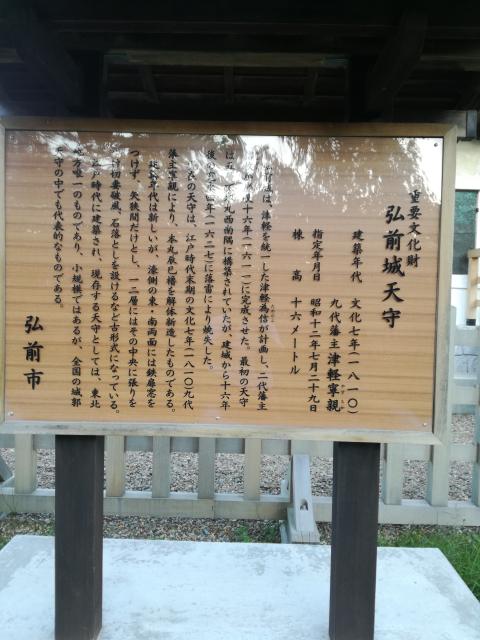 重要文化財
弘前城天守
建築年代 文化七年(一八一〇)
九代藩主津軽寧親
やすちか
指定年月日 昭和十二年七月二十九日
棟高 十六メートル
は、津軽を統一した津軽為信が計画し、二代藩主
ためのぶ
十六年(一六一一)に完成させた。最初の天守
は丸西南隅に構築されていたが、建城から十六年
後の年(一六二七)に落雷により焼失した。
の天守は、江戸時代末期の文化七年(一八一〇)九代
藩主寧親により、本丸辰巳櫓を解体新造したものである。
年代は新しいが、濠側の東・南両面には鉄扉窓を
つけず、矢狭間だけとし、一二層にはその中央に張りを
切妻破風、石落としを設けるなど古形式になっている。
江戸時代に建築され、現存する天守としては、東北
地方唯一のものであり、小規模ではあるが、全国の城郭
天守の中でも代表的なものである。
弘前市